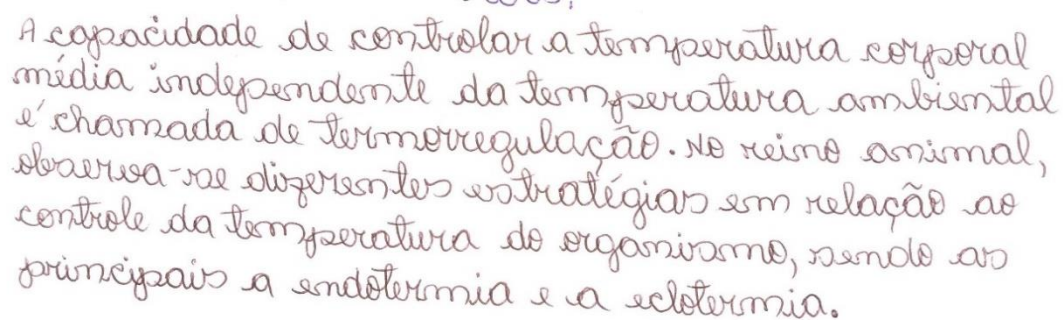 A capacidade de controlar a temperatura corporal
média independente da temperatura ambiental
é chamada de termorregulação. No reino animal,
observa-se diferentes estratégias em relação ao
controle da temperatura do organismo, sendo as
principais a endotermia e a ectotermia.